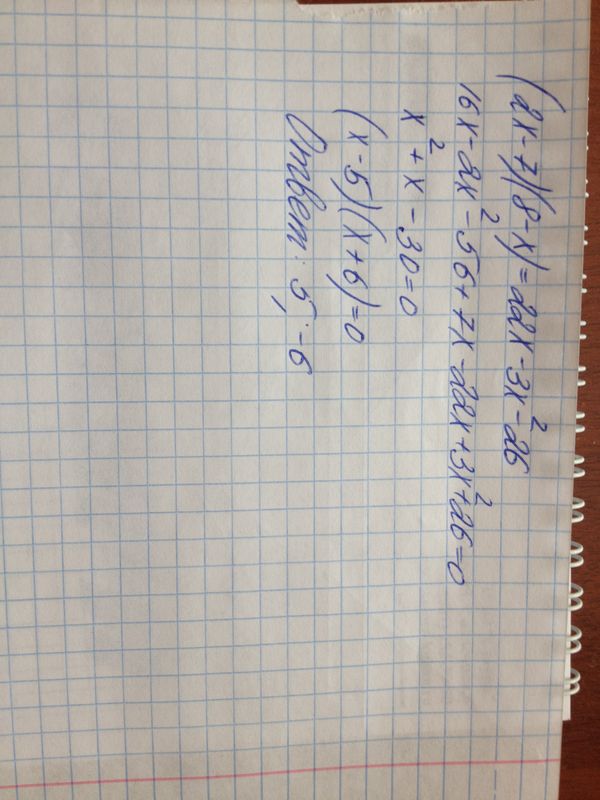 (2x-7)(8-x)=22x-3x²-26
16x-2x²-56+7x-22x+3x²+26=0
x²+x-30=0
(x-5)(x+6)=0
Ответ: 5; -6